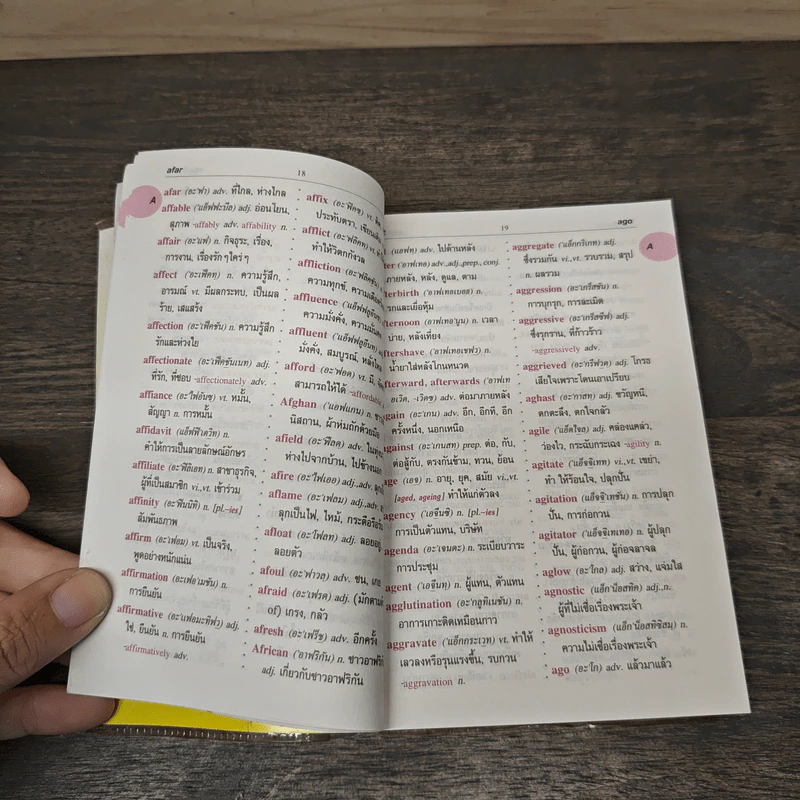 afar
18
A
afar (อะ'ฟา) adv. ที่ไกล, ห่างไกล
affable ('แอ็ฟฟะบึล) adj. อ่อนโยน,
สุภาพ -affably adv. affability n.
affair (อะ'แฟ) n. กิจธุระ, เรื่อง,
การงาน, เรื่องรักๆใคร่ๆ
affect (อะ'เฟ็คทฺ) n. ความรู้สึก,
อารมณ์ vt. มีผลกระทบ, เป็นผล
ร้าย, เสแสร้ง
affection (อะ'เฟ็คชัน) n. ความรู้สึก
รักและห่วงใย
affectionate (อะ'เฟ็คชันเนท) adj.
ที่รัก, ที่ชอบ -affectionately adv.
affiance (อะ'ไฟอันซฺ) vt. หมั้น,
สัญญา n. การหมั้น
affidavit (แอ็ฟฟิ'เดวิท) n.
คำให้การเป็นลายลักษณ์อักษร
affiliate (อะ'ฟิลิเอท) n. สาขาธุรกิจ,
ผู้เป็นสมาชิก vi.,vt. เข้าร่วม
affinity (อะ'ฟินนิที) n. [pl.-ies]
สัมพันธภาพ
affirm (อะ'เฟอม) vt. เป็นจริง,
พูดอย่างหนักแน่น
affirmation (แอ็ฟเฟอ'เมชัน) n.
การยืนยัน
affirmative (อะ'เฟอมะทิฟว) adj.
ใช่, ยืนยัน n. การยืนยัน
-affirmatively adv.
affix (อะ'ฟิคซฺ) vt.
ประทับตรา,
afflict (อะ'ฟลิคทฺ) vt.
ทำให้วิตกกังวล
affliction (อะ'ฟลิคชัน)
ความทุกข์,
affluence ('แอ็ฟฟลูอึนซฺ)
ความมั่งคั่ง,
affluent ('แอ็ฟฟลูอึนทฺ)
มั่งคั่ง, สมบูรณ์,
afford (อะ'ฟอด) vt. มี,
สามารถให้ได้ -affordable
Afghan ('แอฟแกน) n.
นิสถาน, ผ้าห่มถักด้วยมือ
afield (อะ'ฟีลด) adv.
ห่างไปจากบ้าน,
afire (อะ'ไฟเออ) adj.,adv.
aflame (อะ'เฟลม) adj.,adv.
ลุกเป็นไฟ, ไหม้,
afloat (อะ'โฟลท) adj.
ลอยตัว
afoul (อะ'ฟาวลฺ) adv. ชน,
afraid (อะ'เฟรด) adj. (มักตามด้วย
of) เกรง, กลัว
afresh (อะ'เฟร็ช) adv. อีกครั้ง
African ('อาฟริกัน) n. ชาวอาฟริกัน
adj. เกี่ยวกับชาวอาฟริกัน
19
ago
A
adv. ไปด้านหลัง
adv.,adj.,prep., conj.
ภายหลัง, หลัง, ดูแล, ตาม
n.
รกและเยื่อหุ้ม
n. เวลา
บ่าย, หลังเที่ยง
n.
น้ำยาใส่หลังโกนหนวด
afterward, afterwards
adv. ต่อมาภายหลัง
again (อะ'เกน) adv. อีก, อีกที, อีก
ครั้งหนึ่ง, นอกเหนือ
against (อะ'เกนสทฺ) prep. ต่อ, กับ,
ต่อสู้กับ, ตรงกันข้าม, ทวน, ย้อน
age (เอจ) n. อายุ, ยุค, สมัย vi.,vt.
[aged, ageing] ทำให้แก่ตัวลง
agency ('เอจึนซิ) n. [pl.-ies]
การเป็นตัวแทน, บริษัท
agenda (อะ'เจนดะ) n. ระเบียบวาระ
การประชุม
agent ('เอจึนทฺ) n. ผู้แทน, ตัวแทน
agglutination (อะ'กลูทิเนชัน) n.
อาการเกาะติดเหมือนกาว
aggravate ('แอ็กกระเวท) vt. ทำให้
เลวลงหรือรุนแรงขึ้น, รบกวน
-aggravation n.
aggregate ('แอ็กกริเกท) adj.
ซึ่งรวมกัน vi.,vt. รวบรวม, สรุป
n. ผลรวม
aggression (อะ'เกรีสชัน) n.
การบุกรุก, การละเมิด
aggressive (อะ'เกรีสซีฟ) adj.
ซึ่งรุกราน, ที่ก้าวร้าว
-aggressively adv.
aggrieved (อะ'กรีฟวดฺ) adj. โกรธ
เสียใจเพราะโดนเอาเปรียบ
aghast (อะ'กาสทฺ) adj. ขวัญหนี,
ตกตะลึง, ตกใจกลัว
agile ('แอ็ดไจล) adj. คล่องแคล่ว,
ว่องไว, กระฉับกระเฉง -agility n.
agitate ('แอ็จจิเทท) vi.,vt. เขย่า,
ทำ ให้ร้อนใจ, ปลุกปั้น
agitation (แอ็จจิ'เทชัน) n. การปลุก
ปั้น, การก่อกวน
agitator ('แอ็จจิเทเทอ) n. ผู้ปลุก
ปั้น, ผู้ก่อกวน, ผู้ก่อจลาจล
aglow (อะ'โกล) adj. สว่าง, แจ่มใส
agnostic (แอ็ก'น็อสทิค) adj.,n.
ผู้ที่ไม่เชื่อเรื่องพระเจ้า
agnosticism (แอ็ก'น็อสทิซิสมฺ) n.
ความไม่เชื่อเรื่องพระเจ้า
ago (อะ'โก) adv. แล้วมาแล้ว